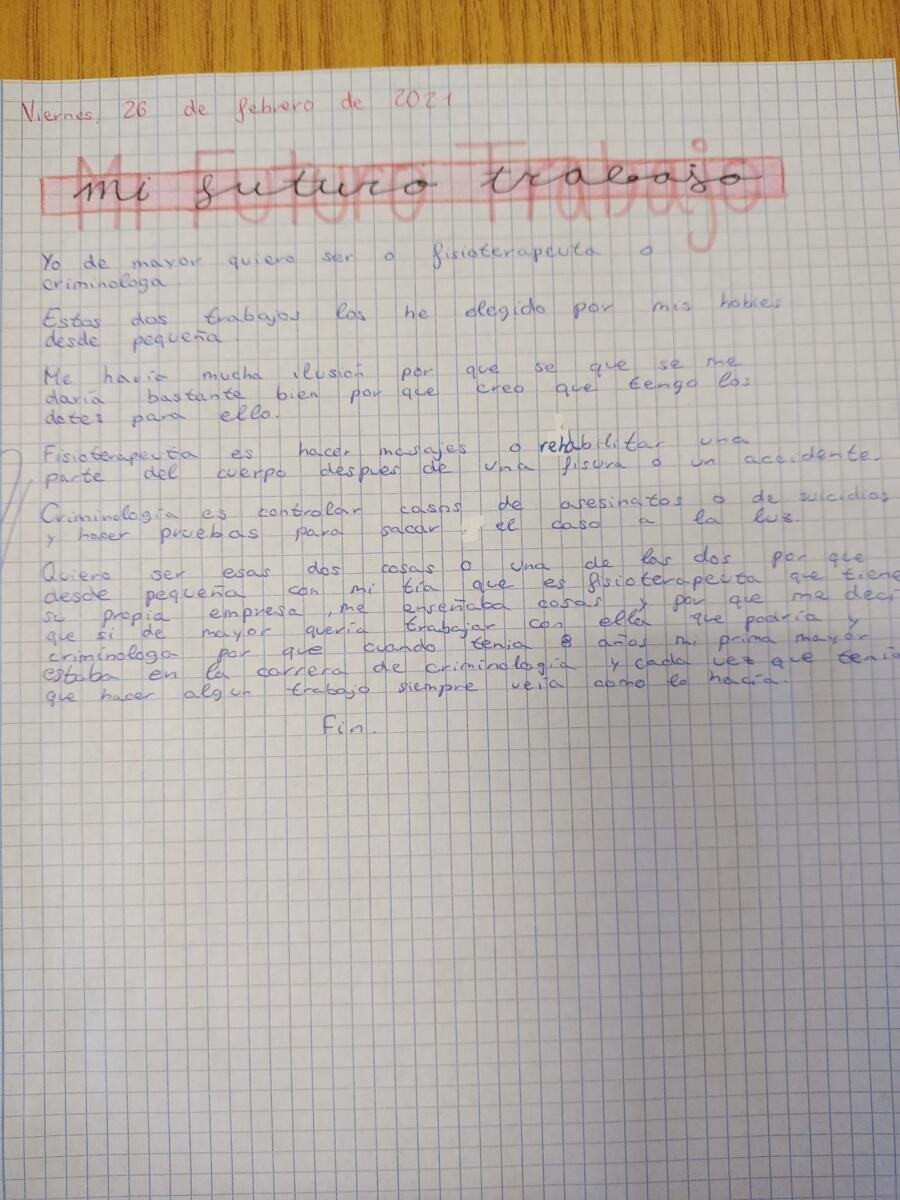 Viernes, 26 de febrero de 2021
Mi Futuro Trabajo
mi futuro trabajo
Yo de mayor quiero ser o fisioterapeuta o
criminologa
Estos dos trabajos los he elegido por mis hobies
desde pequeña.
Me haria mucha ilusión por que se que se me
daría bastante bien por que creo que tengo los
dotes para ello.
Fisioterapeuta es hacer masajes o rehabilitar una
parte del cuerpo despues de una fisura o un accidente.
Criminología es controlar casos de asesinatos o de suicidios
y hacer pruebas para sacar el caso a la luz.
Quiero ser esas dos cosas o una de las dos por que
desde pequeña con mi tía que es fisioterapeuta que tiene
su propia empresa, me enseñaba cosas y por que me deci
que si de mayor quería trabajar con ella que podría y
criminologa por que cuando tenia 8 años mi prima mayor
estaba en la carrera de criminologia y cada vez que teni
que hacer algun trabajo siempre veía como lo hacía.
Fin.